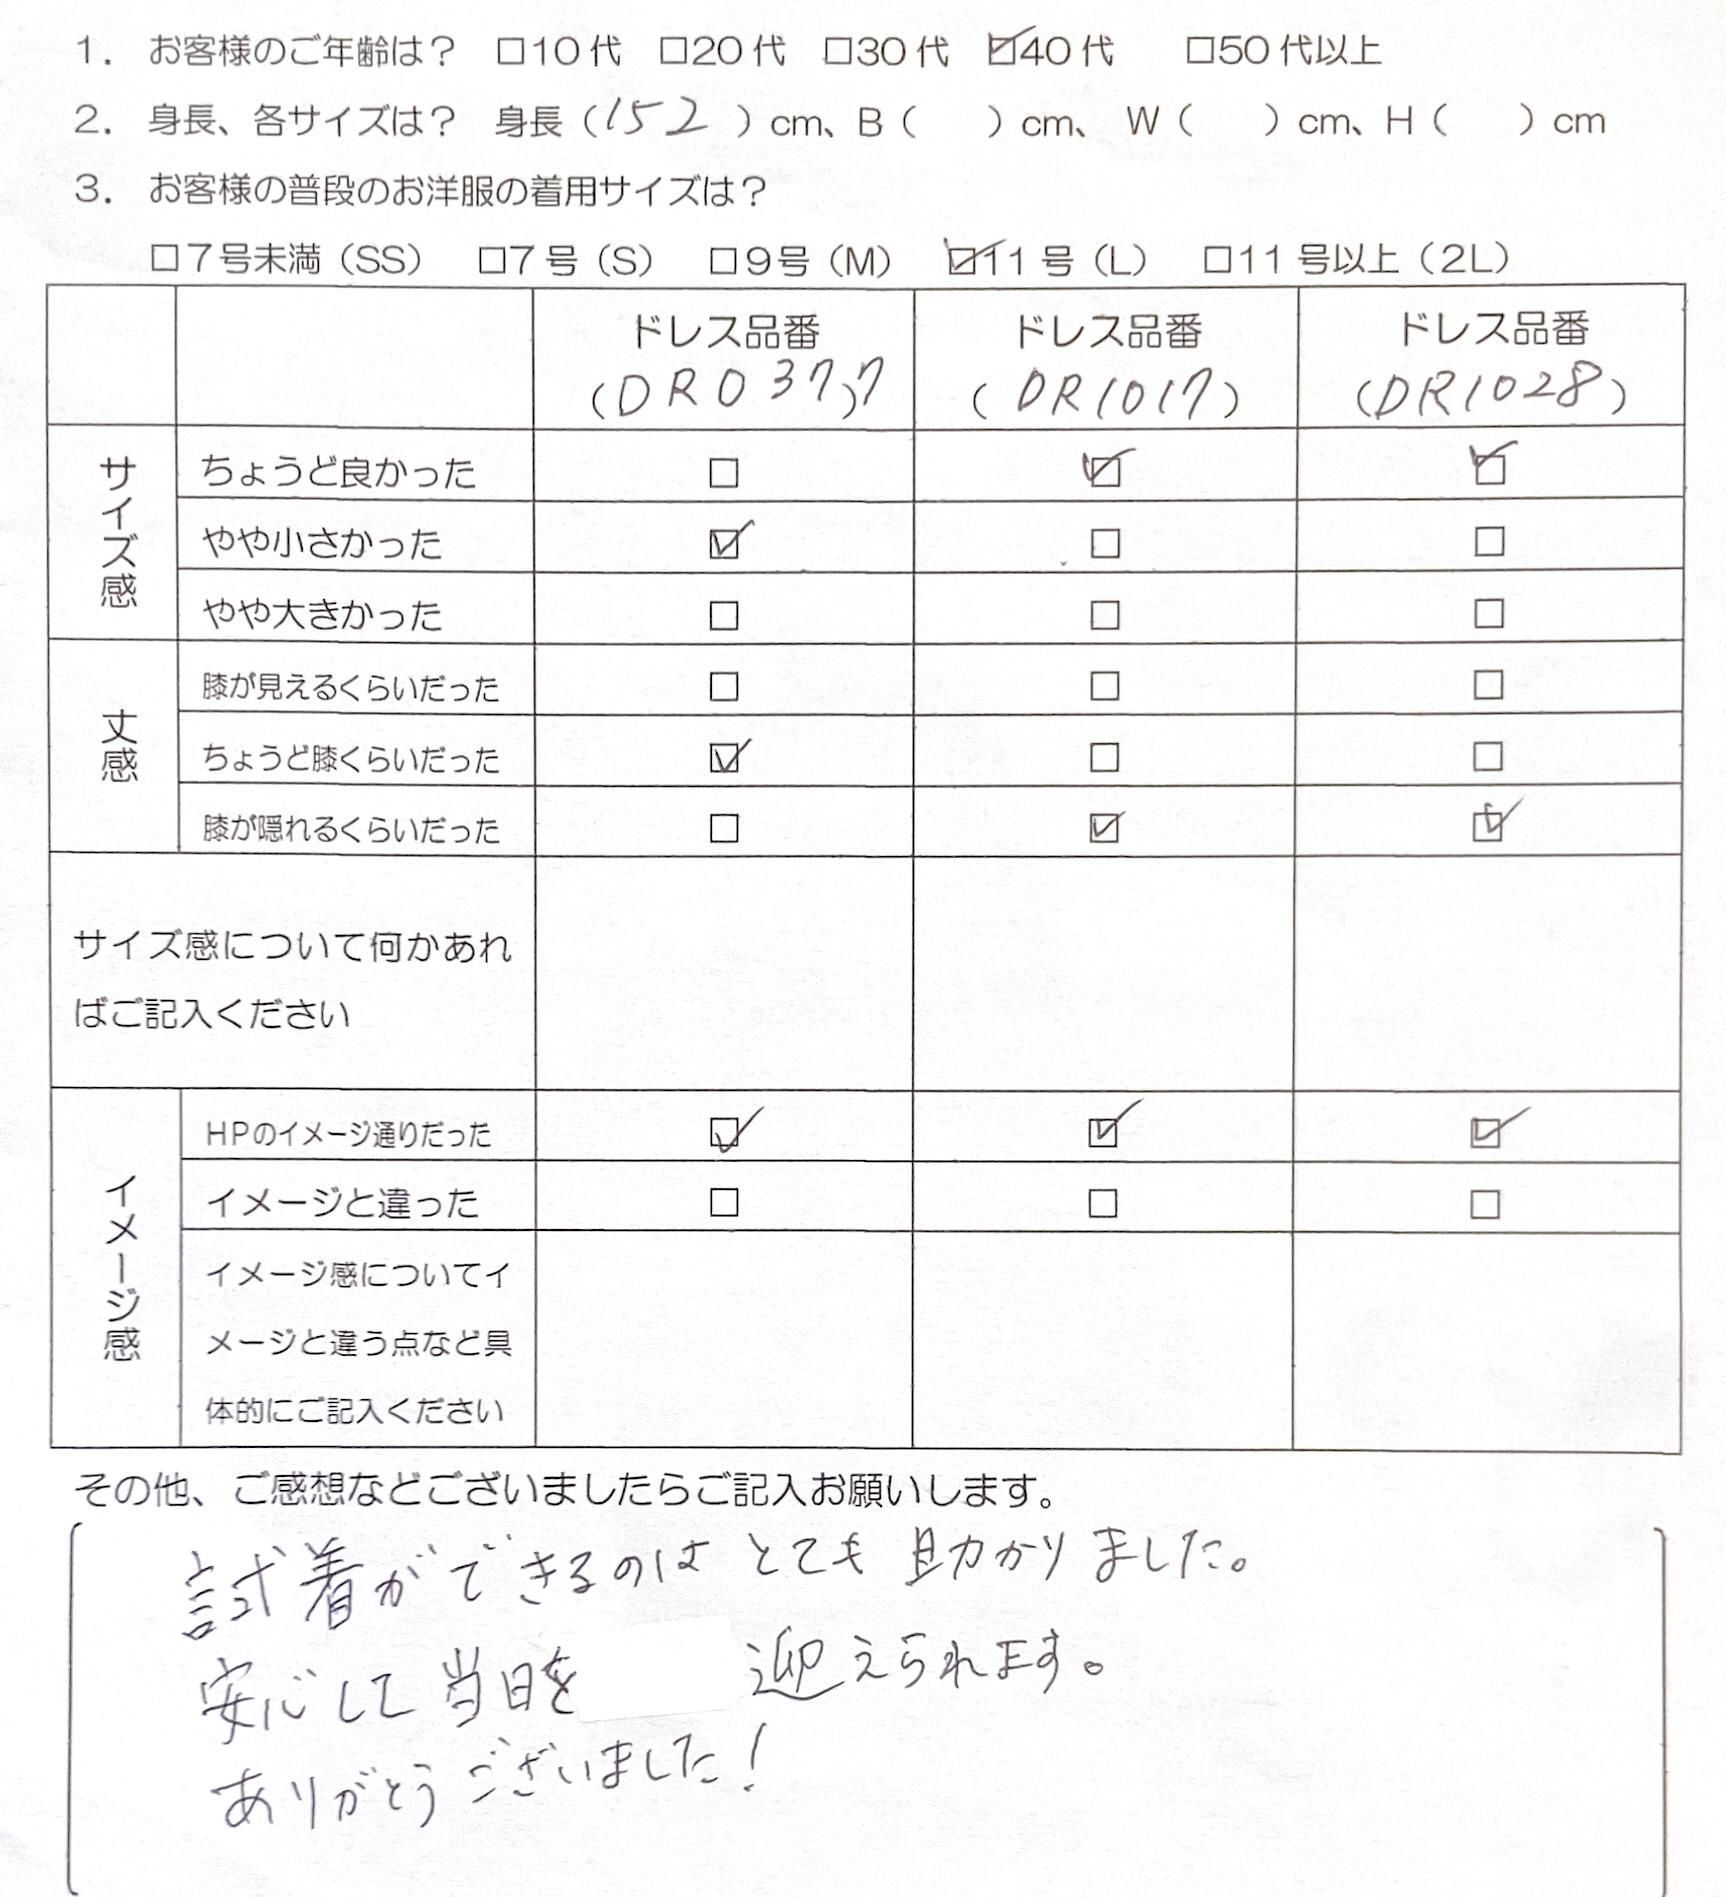 1. お客様のご年齢は? □10代 □20代 □30代 ☑40代 □50代以上
2. 身長、各サイズは? 身長(152)cm、B( )cm、W( )cm、H( )cm
3. お客様の普段のお洋服の着用サイズは?
□7号未満(SS) □7号(S) □9号(M) ☑11号(L) □11号以上(2L)
ドレス品番 ドレス品番 ドレス品番
(DR0377) (DR1017) (DR1028)
サイズ感
ちょうど良かった □ ☑ ☑
やや小さかった ☑ □ □
やや大きかった □ □ □
丈感
膝が見えるくらいだった □ □ □
ちょうど膝くらいだった ☑ □ □
膝が隠れるくらいだった □ ☑ ☑
サイズ感について何かあれ
ばご記入ください
イメージ感
HPのイメージ通りだった ☑ ☑ ☑
イメージと違った □ □ □
イメージ感についてイ
メージと違う点など具
体的にご記入ください
その他、ご感想などございましたらご記入お願いします。
試着ができるのはとても助かりました。
安心して当日を 迎えられます。
ありがとうございました!